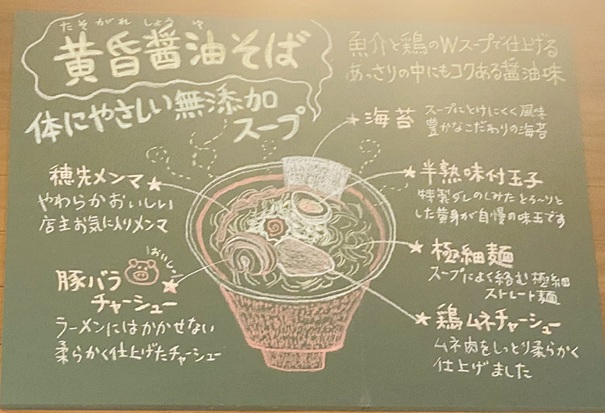 たそがれ しょうゆ
黄昏醤油そば
体にやさしい無添加
スープ
魚介と鶏のWスープで仕上げる
あっさりの中にもコクある醤油味
★海苔
スープにとけにくく風味
豊かなこだわりの海苔
穂先メンマ★
やわらかおいしい
店主お気に入りメンマ
★半熟味付玉子
特製ダレのしみたとろ〜りと
した黄身が自慢の味玉です
★極細麺
スープによく絡む極細
ストレート麺
おいしい
豚バラ
チャーシュー★
ラーメンにはかかせない
柔らかく仕上げたチャーシュー
★鶏ムネチャーシュー
ムネ肉をしっとり柔らかく
仕上げました